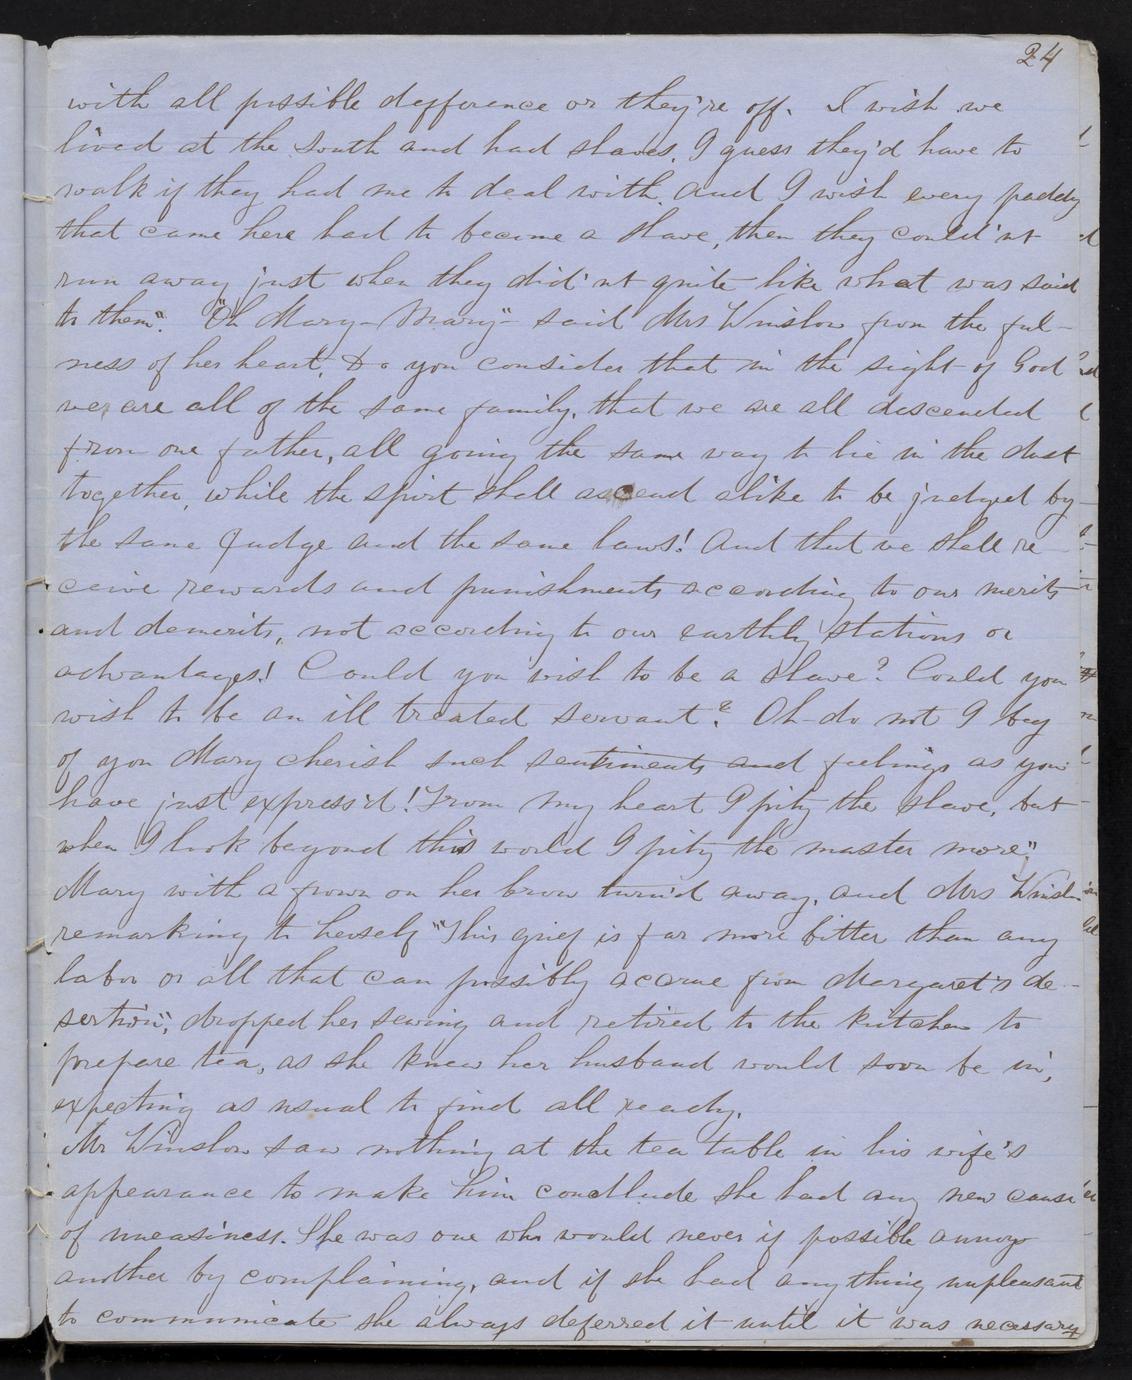 24
with all possible defference or they're off. I wish we
lived at the South and had slaves. I guess they'd have to
walk if they had me to deal with. And I wish every paddy
that came here had to become a slave, then they could'nt
run away just when they did'nt quite like what was said
to them". "Oh Mary-Mary" said Mrs Winslow from the ful-
ness of her heart, Do you consider that in the sight of God
we are all of the same family, that we are all descended
from one father, all going the same way to lie in the dust
together, while the spirit shall ascend alike to be judged by
the same Judge and the same laws! And that we shall re-
ceive rewards and punishments according to our merits
and demerits, not according to our earthly stations or
advantages! Could you wish to be a slave? Could you
wish to be an ill treated servant? Oh do not I beg
of you Mary cherish such sentiments and feelings as you
have just express'd! From my heart I pity the slave, but
when I look beyond this world I pity the master more."
Mary with a frown on her brow turn'd away, and Mrs Winslow
remarking to herself "This grief is far more bitter than any
labor or all that can possibly accrue from Margaret's de-
sertion", dropped her sewing and retired to the kitchen to
prepare tea, as she knew her husband would soon be in,
expecting as usual to find all ready.
Mr Winslow saw nothing at the tea table in his wife's
appearance to make him conclude she had any new cause
of uneasiness. She was one who would never if possible annoy
another by complaining, and if she had any thing unpleasant
to communicate she always deferred it until it was necessary